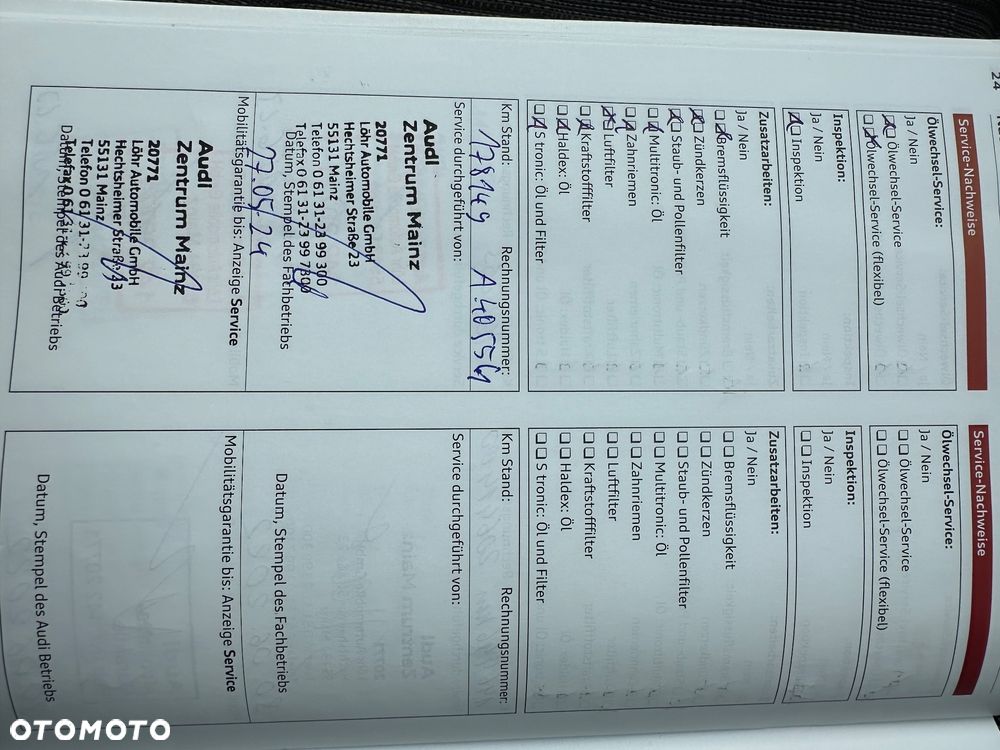 24
Service-Nachweise
Ölwechsel-Service:
Ja / Nein
Ölwechsel-Service
Ölwechsel-Service (flexibel)
Inspektion:
Ja / Nein
Inspektion
Zusatzarbeiten:
Ja / Nein
Bremsflüssigkeit
Zündkerzen
Staub- und Pollenfilter
Multitronic: Öl
Zahnriemen
Luftfilter
Kraftstofffilter
Haldex: Öl
S tronic: Öl und Filter
Km Stand: Rechnungsnummer:
178149 A40554
Service durchgeführt von:
Audi
Zentrum Mainz
20771
Löhr Automobile GmbH
Hechtsheimer Straße 23
55131 Mainz
Telefon 0 61 31-23 99 300
Telefax 0 61 31-23 99 7300
Datum, Stempel des Fachbetriebs
27.05.24
Mobilitätsgarantie bis: Anzeige Service
Audi
Zentrum Mainz
20771
Löhr Automobile GmbH
Hechtsheimer Straße 23
55131 Mainz
Telefon 0 61 31-23 99
Telefax 0 61
Datum, Stempel des Audi Betriebs
Service-Nachweise
Ölwechsel-Service:
Ja / Nein
Ölwechsel-Service
Ölwechsel-Service (flexibel)
Inspektion:
Ja / Nein
Inspektion
Zusatzarbeiten:
Ja / Nein
Bremsflüssigkeit
Zündkerzen
Staub- und Pollenfilter
Multitronic: Öl
Zahnriemen
Luftfilter
Kraftstofffilter
Haldex: Öl
S tronic: Öl und Filter
Km Stand: Rechnungsnummer:
Service durchgeführt von:
Datum, Stempel des Fachbetriebs
Mobilitätsgarantie bis: Anzeige Service
Datum, Stempel des Audi Betriebs
OTOMOTO